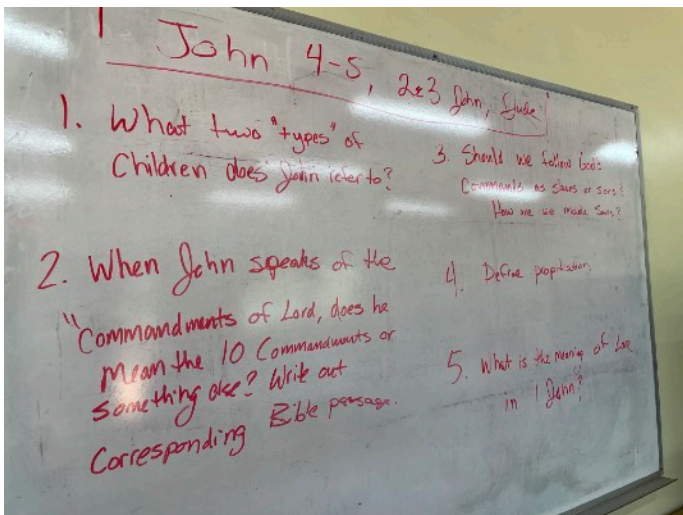 1 John 4-5, 2&3 John, Jude
1. What two "types" of
Children does John refer to?
2. When John speaks of the
"Commandments of Lord, does he
mean the 10 Commandments or
something else? Write out
Corresponding Bible passage.
3. Should we follow God's
Commands as slaves or sons?
How are we made sons?
4. Define propitiation.
5. What is the meaning of Love
in 1 John?